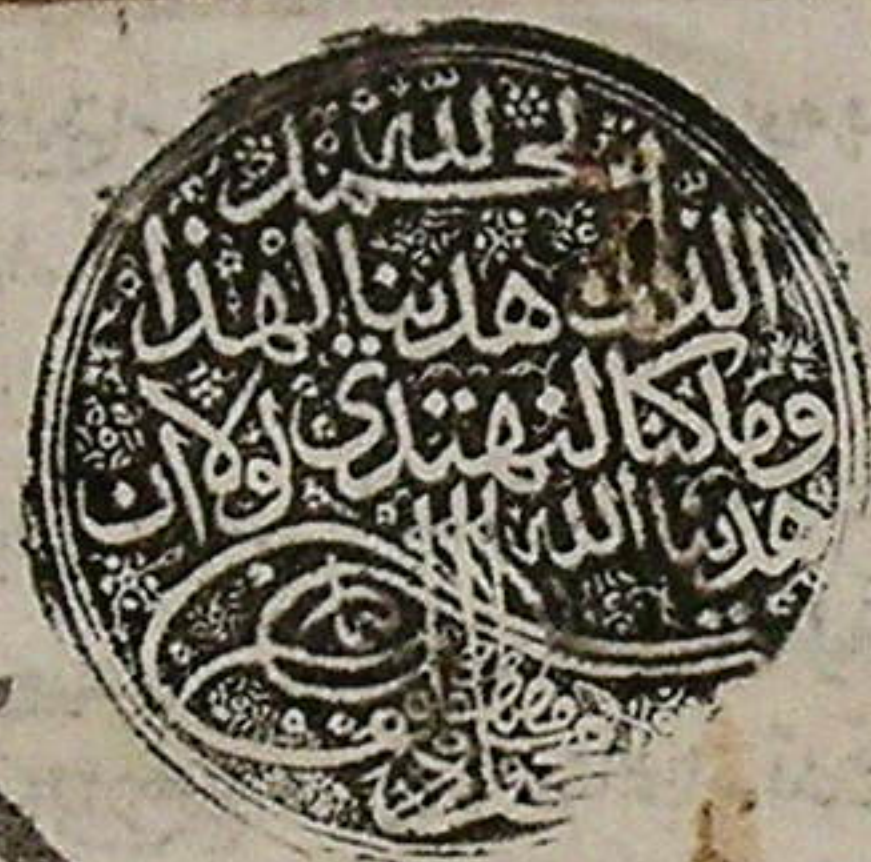 الحمد لله
الذي هدينا لهذا
وما كنا لنهتدي لولا ان
هدينا الله
محمود
مظفر